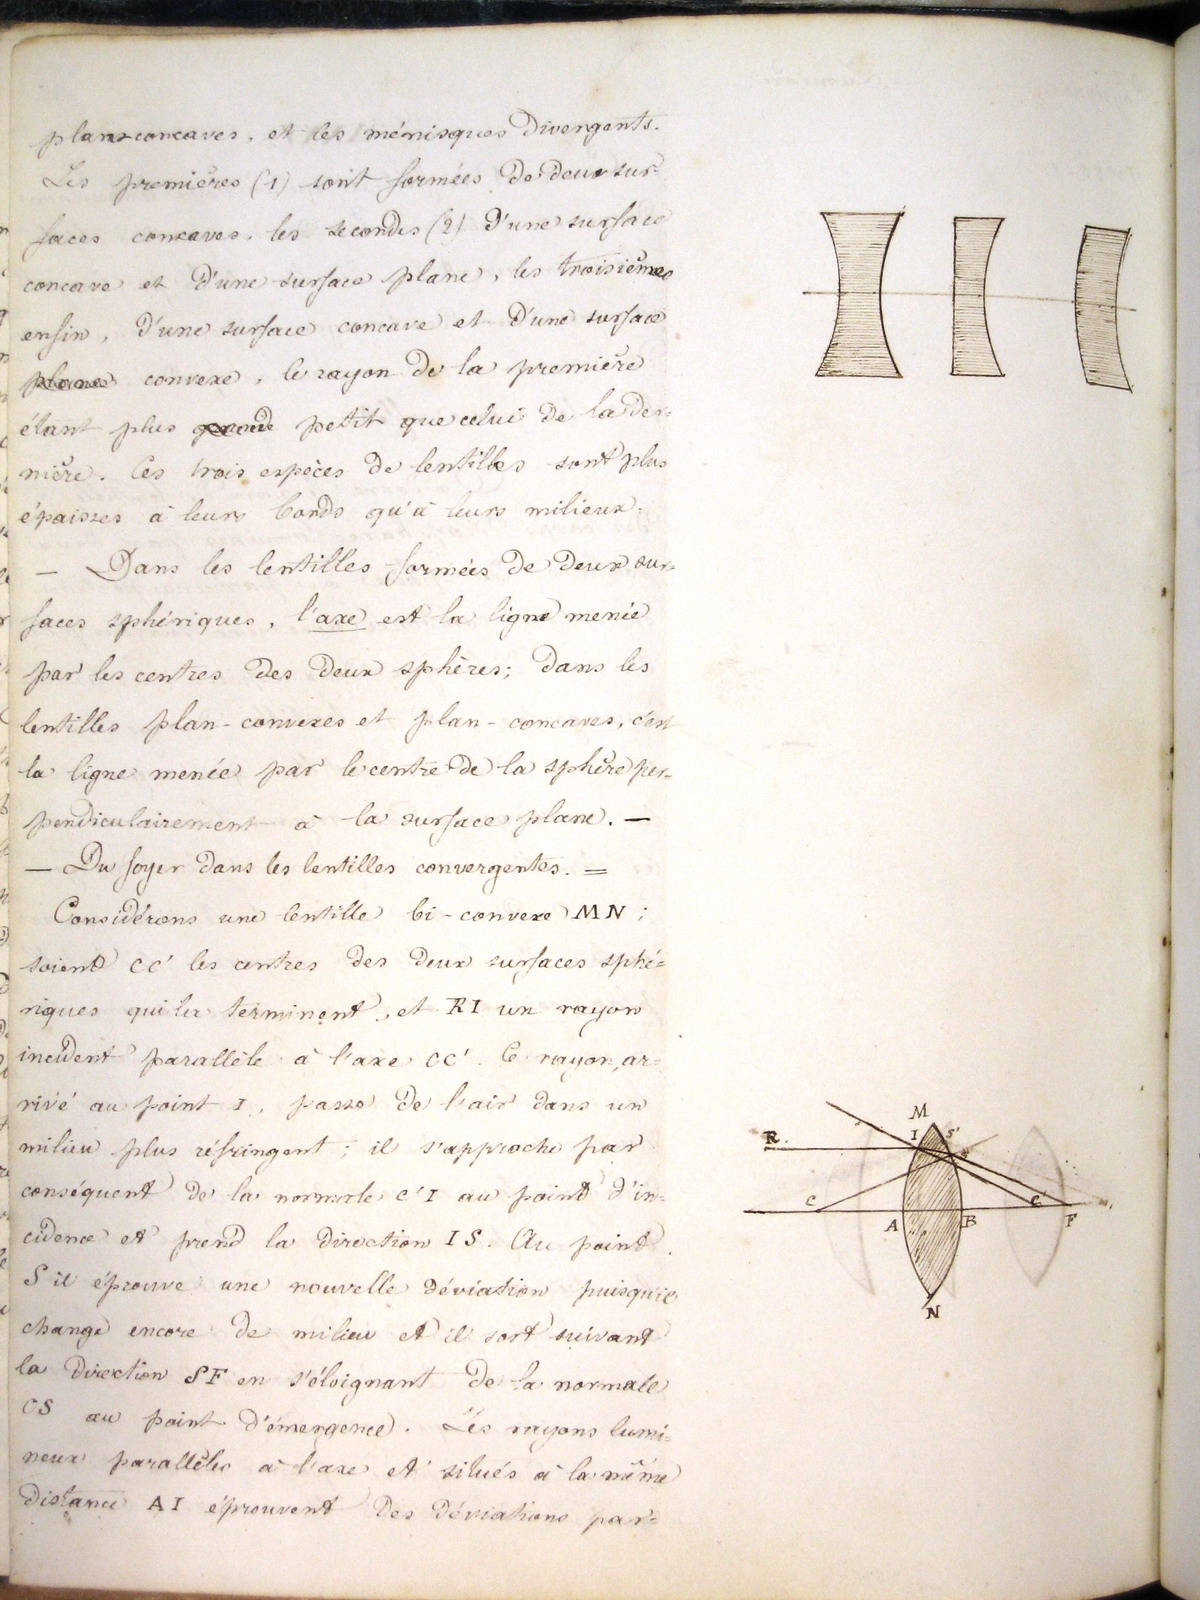 plans-concaves, et les ménisques divergents.
Les premières (1) sont formées de deux sur-
faces concaves, les secondes (2) d'une surface
concave et d'une surface plane, les troisièmes
enfin, d'une surface concave et d'une surface
plane convexe, le rayon de la première
étant plus grand petit que celui de la der-
nière. Ces trois espèces de lentilles sont plus
épaisses à leurs bords qu'à leurs milieux.
— Dans les lentilles formées de deux sur-
faces sphériques, l'axe est la ligne menée
par les centres des deux sphères; dans les
lentilles plan-convexes et plan-concaves, c'est
la ligne menée par le centre de la sphère per-
pendiculairement à la surface plane. —
— Du foyer dans les lentilles convergentes. =
Considérons une lentille bi-convexe MN;
soient CC' les centres des deux surfaces sphé-
riques qui la terminent, et RI un rayon
incident parallèle à l'axe CC'. Ce rayon, ar-
rivé au point I, passe de l'air dans un
milieu plus réfringent; il s'approche par
conséquent de la normale C'I au point d'in-
cidence et prend la direction IS. Au point
S il éprouve une nouvelle déviation puisqu'il
change encore de milieu et il sort suivant
la direction SF en s'éloignant de la normale
CS au point d'émergence. Les rayons lumi-
neux parallèles à l'axe et situés à la même
distance AI éprouvent des déviations par-
M
I S'
R.
C C'
A B F
N